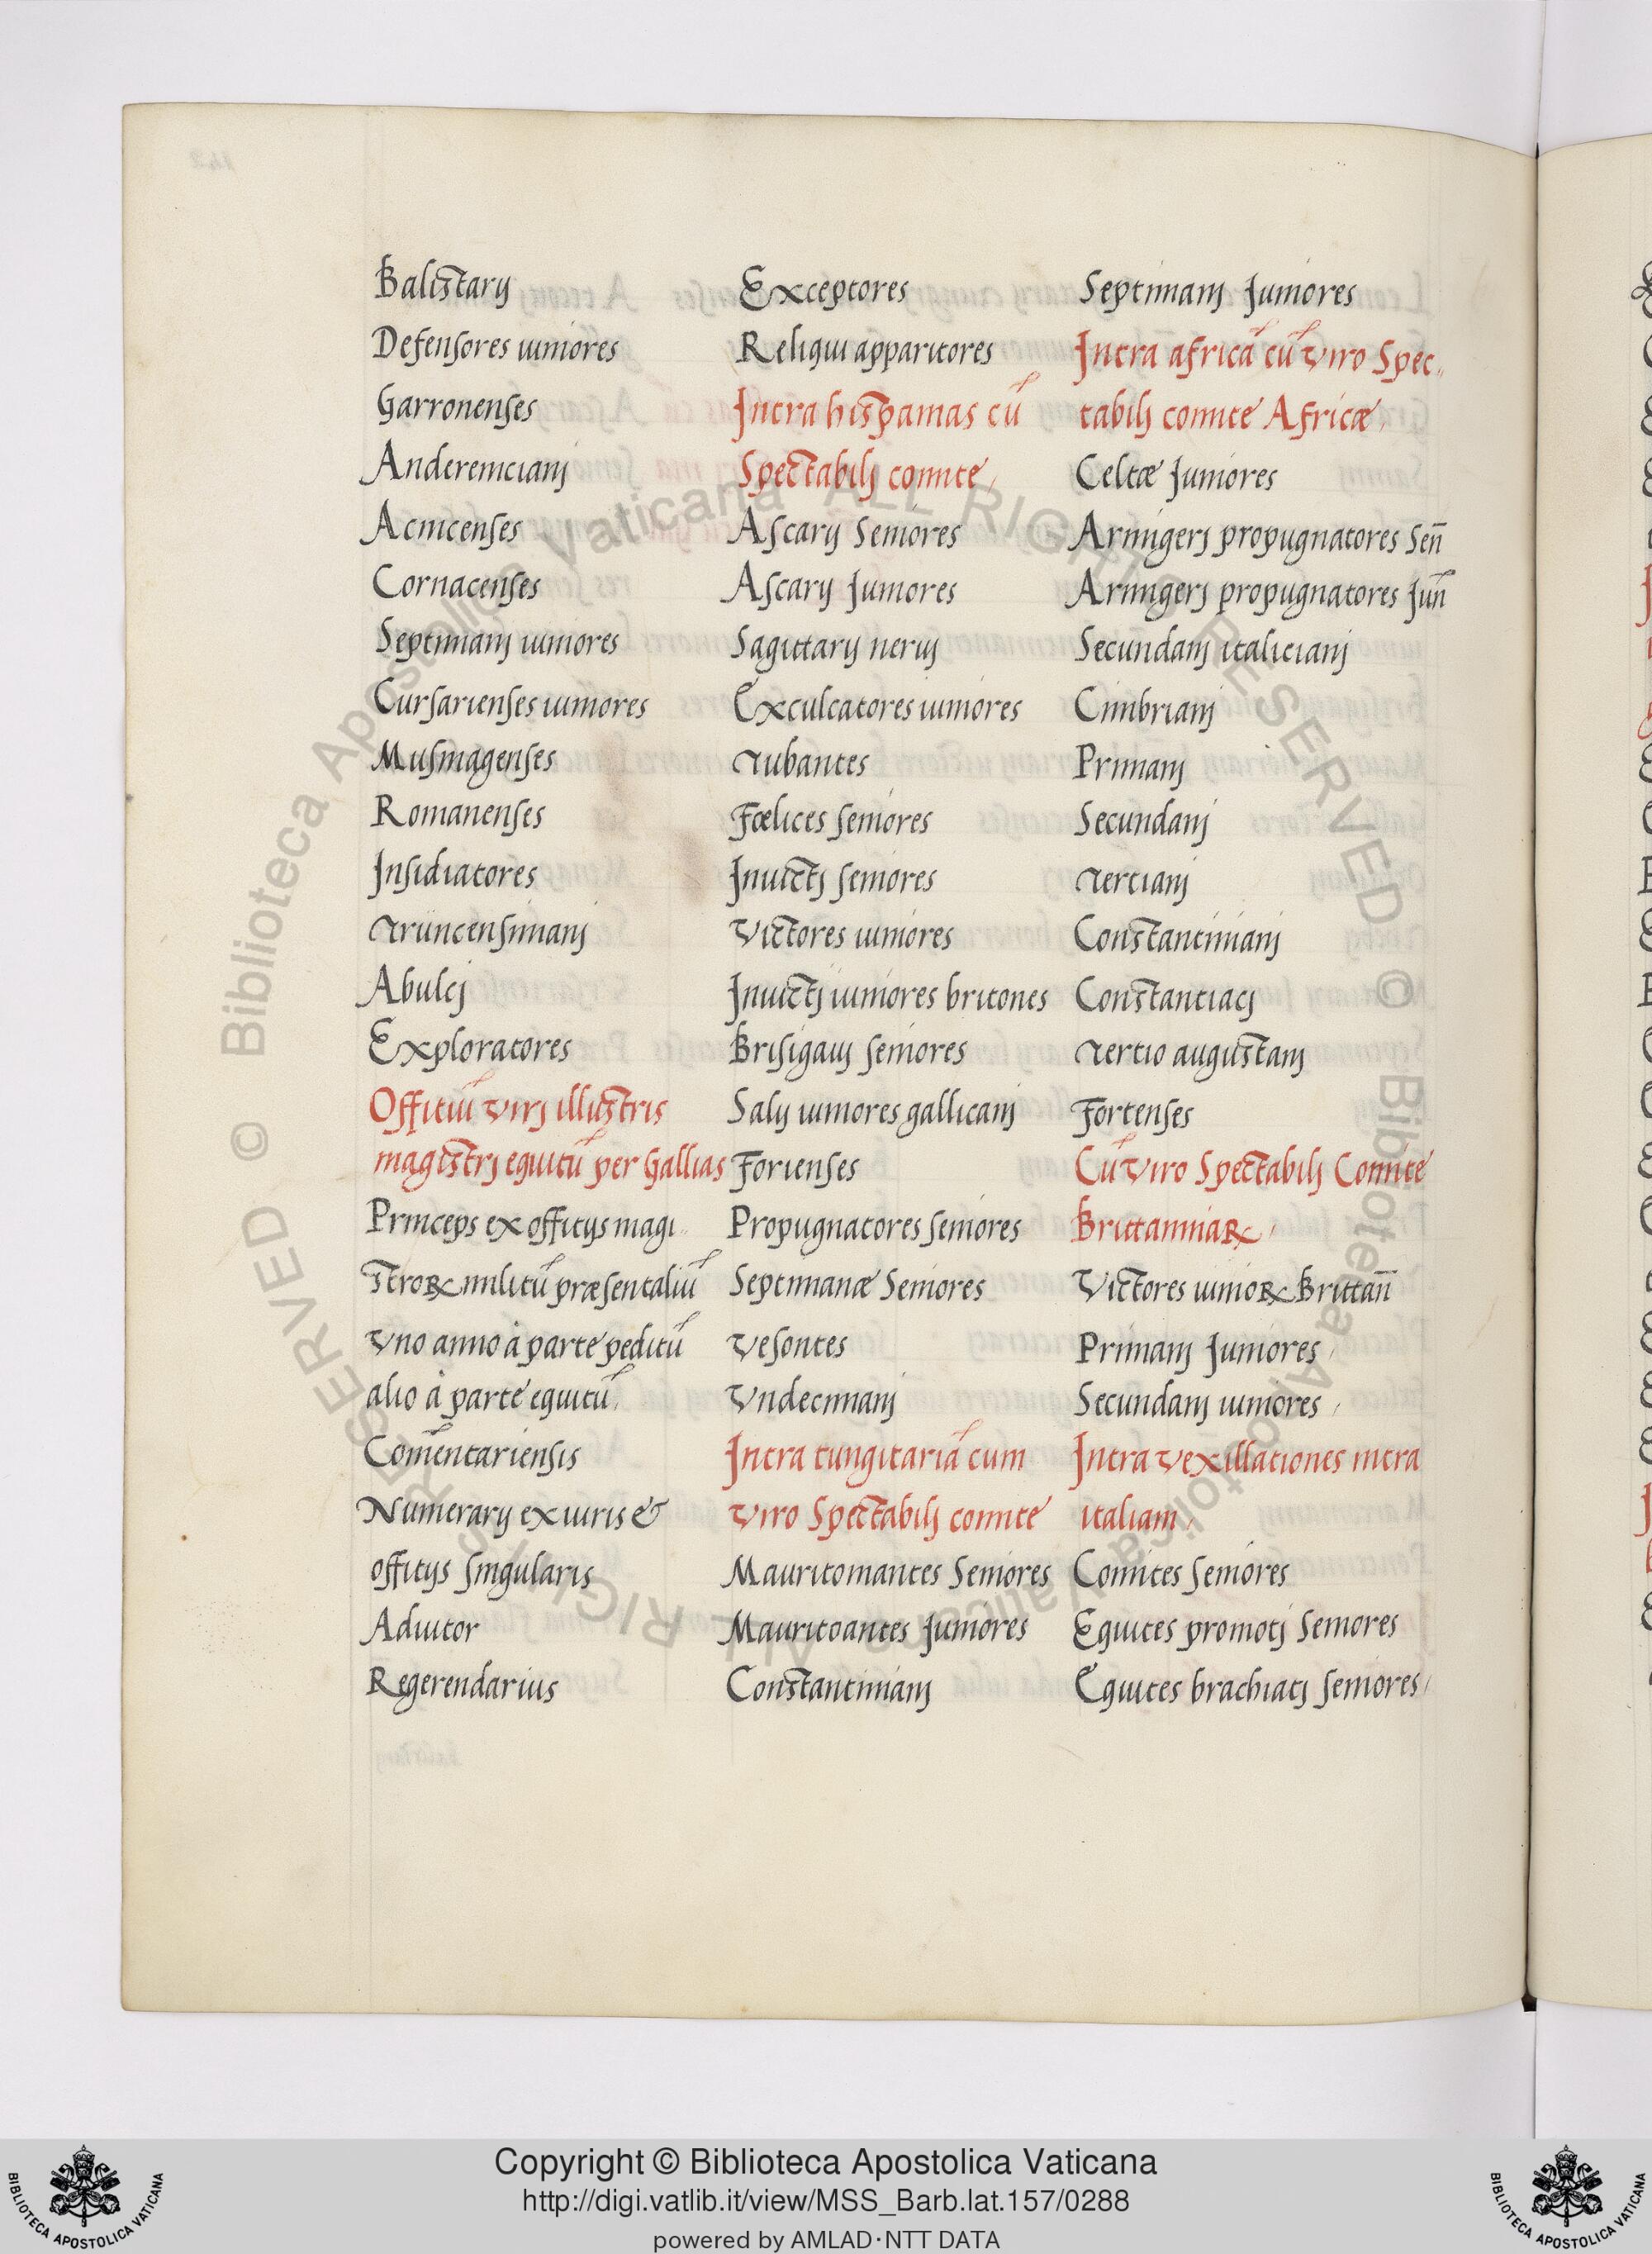 Balistarij
Defensores iuniores
Garronenses
Anderenicianj
Acincenses
Cornacenses
Septimanj iuniores
Cursarienses iuniores
Musmagenses
Romanenses
Insidiatores
Truncensimanj
Abulcj
Exploratores
Offitiū Virj illustris
magistrj equitū per Gallias
Princeps ex offitijs magi
stroꝝ militū præsentaliū
Vno anno à parte peditū
alio à parte equitū
Comētariensis
Numerarij ex iuris &
offitijs singularis
Adiutor
Regerendarius
Exceptores
Reliqui apparitores
Intra hispanias cū
Spectabilj comite
Ascarij Seniores
Ascarij Juniores
Sagittarij neruj
Exculcatores iuniores
Tubantes
Fœlices seniores
Inuictj seniores
Victores iuniores
Inuictj iuniores britones
Brisigauj seniores
Salij iuniores gallicanj
Forienses
Propugnatores seniores
Septimanæ Seniores
Vesontes
Vndecimanj
Intra tungitariā cum
Viro Spectabilj comite
Mauritomantes Seniores
Mauritoantes Juniores
Constantinianj
Septimanj Juniores
Intra africā cū Viro Spec
tabilj comite Africæ
Celtæ Juniores
Armigerj propugnatores Señ
Armigerj propugnatores Juñ
Secundanj italicianj
Cimbrianj
Primanj
Secundanj
Tertianj
Constantinianj
Constantiacj
Tertio augustanj
Fortenses
Cū Viro Spectabilj Comite
Brittanniaꝝ
Victores iunioꝝ Brittañ
Primanj Juniores
Secundanj iuniores
Intra Vexillationes intra
italiam
Comites seniores
Equites promotj Seniores
Equites brachiatj seniores
© Biblioteca Apostolica Vaticana ALL RIGHTS RESERVED
© Biblioteca Apostolica Vaticana ALL RIGHTS RESERVED
BIBLIOTECA APOSTOLICA VATICANA
Copyright © Biblioteca Apostolica Vaticana
http://digi.vatlib.it/view/MSS_Barb.lat.157/0288
powered by AMLAD·NTT DATA
BIBLIOTECA APOSTOLICA VATICANA